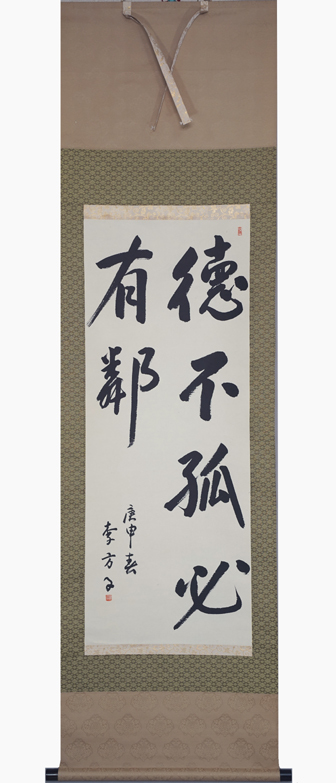 德不孤必
有鄰
庚申春
李方子